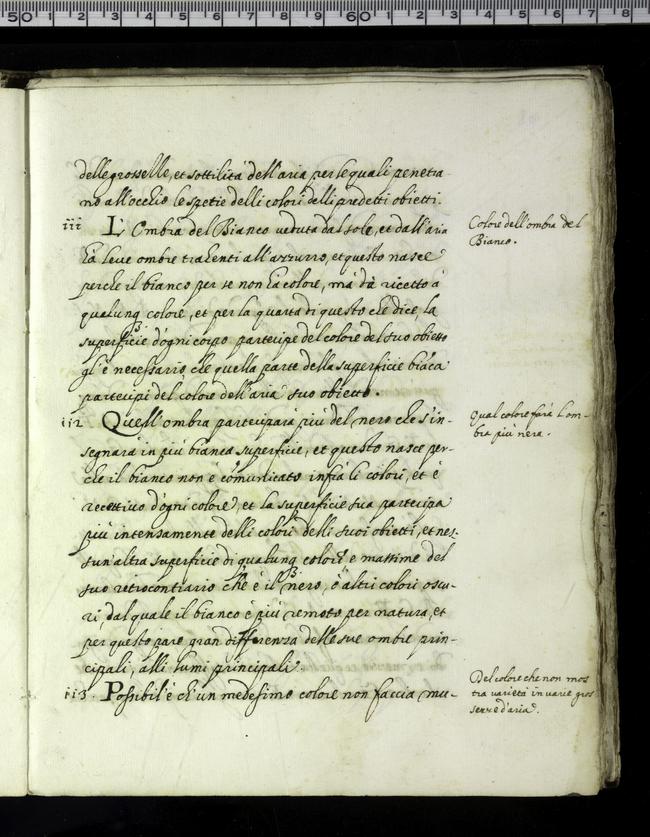 delle grosselle, et sottilità dell'aria per le quali penetra-
no all'occhio le spetie delli colori delli predetti obietti.
iii L'Ombra del Bianco veduta dal sole, et dall'aria
Colore dell'ombra del
Bianco.
hà le sue ombre trahenti all'azzurro, et questo nasce
perche il bianco per se non ha colore, mà dà ricetto à
qualunq colore, et per la quarta di questo che dice, la
superficie d'ogni corpo partecipe del colore del suo obietto
gl'è necessario che quella parte della superficie biãca
partecipi del colore dell'aria suo obietto.
112 Quell'ombra parteciparà più del nero che s'in-
Qual colore farà l'om-
bra più nera.
segnarà in più bianca superficie, et questo nasce per-
che il bianco non è cõmunicato infrà li colori, et è
recettivo d'ogni colore, et la superficie sua partecipa
più intensamente delli colori delli suoi obietti, et nes-
sun'altra superficie di qualunq colore e massime del
suo retrocontrario che è il nero, ò altri colori oscu-
ri dal quale il bianco e più remoto per natura, et
per questo pare gran differenza delle sue ombre prin-
cipali, alli lumi principali.
113. Possibil'è ch'un medesimo colore non faccia mu-
Del colore che non mos
tra varietà in varie gros
sezze d'aria.